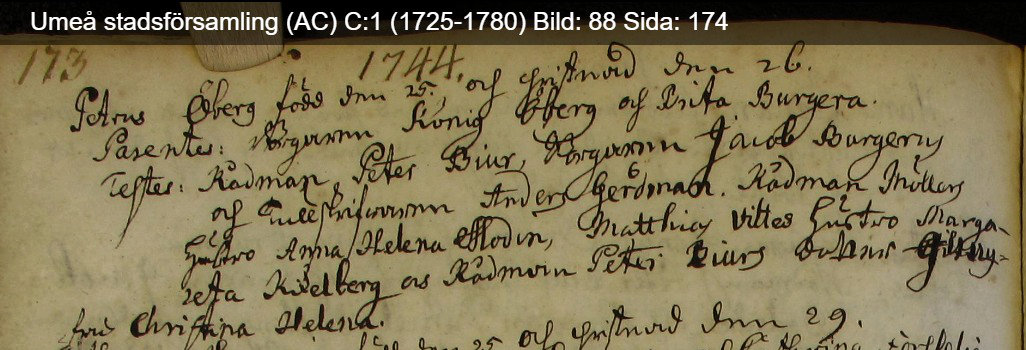 Umeå stadsförsamling (AC) C:1 (1725-1780) Bild: 88 Sida: 174
173 1744.
Petrus Öberg född den 25. och christnad den 26.
Parentes: Borgaren König Öberg och Brita Burgera.
Testes: Rådman Peter Biur, Borgaren Jacob Burgerus
och Tullskrifwaren Anders Gerdman. Rådman Möllers
hustro Anna Helena Flodin, Matthias Vittes hustro Marga-
reta Kiselberg Rådman Peter Biurs dotter
Christina Helena.
den 25 och christnad den 29.